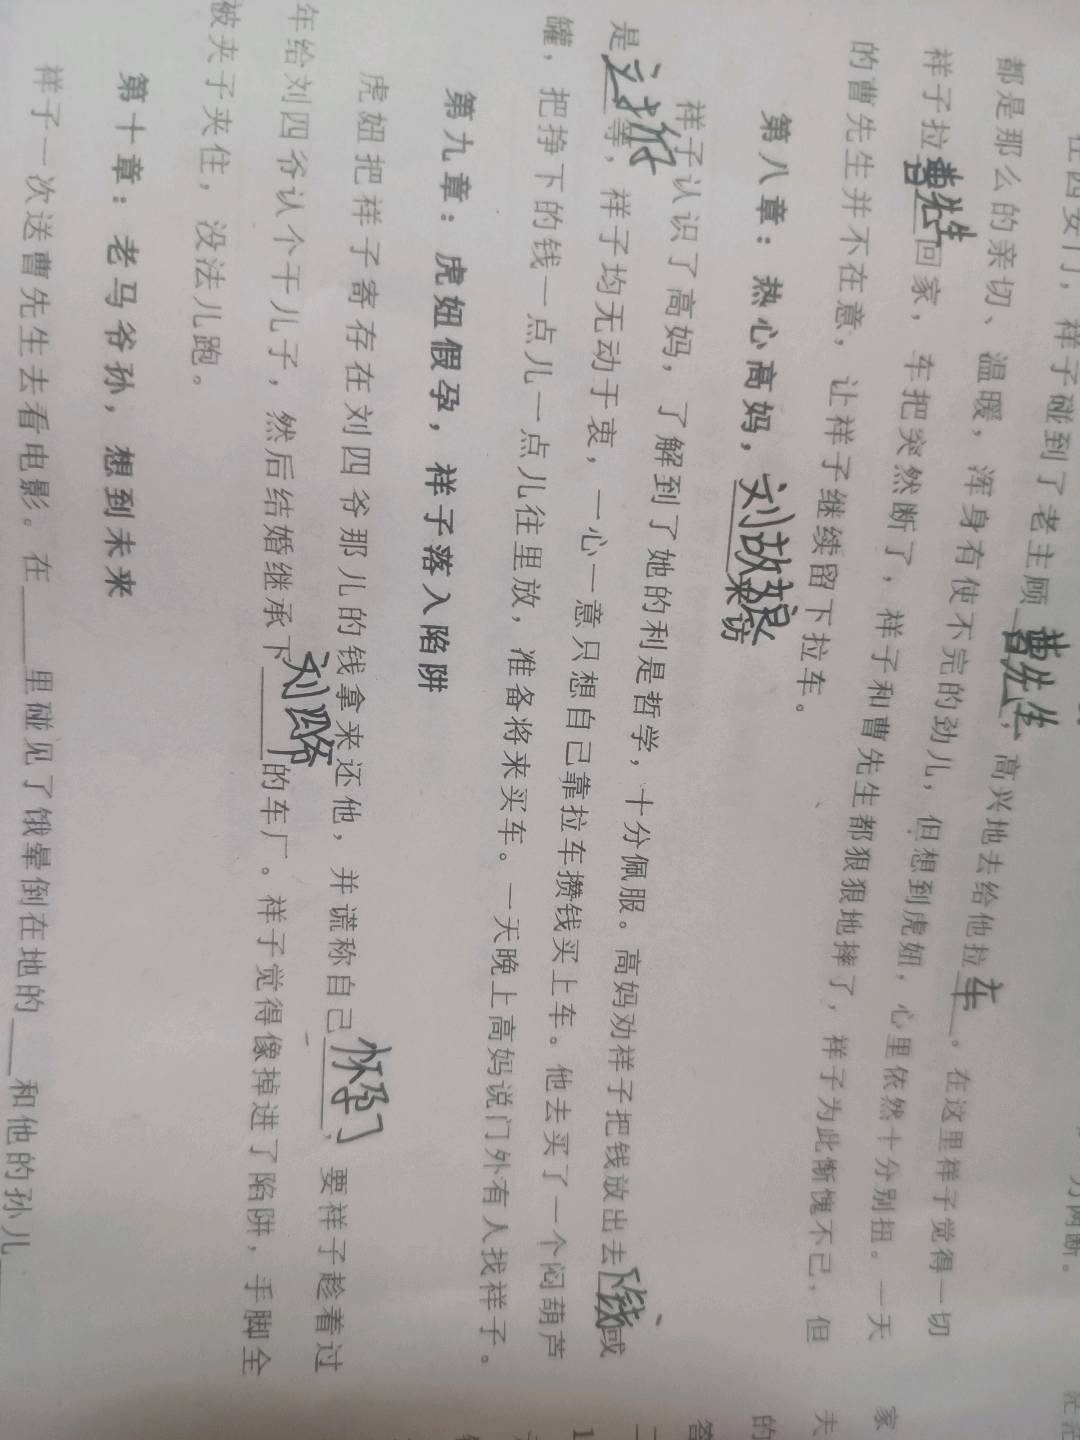 在西安门，祥子碰到了老主顾曹先生，高兴地去给他拉车。在这里祥子觉得一切
都是那么的亲切、温暖，浑身有使不完的劲儿，但想到虎妞，心里依然十分别扭。一天
祥子拉曹先生回家，车把突然断了，祥子和曹先生都狠狠地摔了，祥子为此惭愧不已，但
的曹先生并不在意，让祥子继续留下拉车。
第八章：热心高妈，刘故娘来访
祥子认识了高妈，了解到了她的利是哲学，十分佩服。高妈劝祥子把钱放出去钱或
是立折等，祥子均无动于衷，一心一意只想自己靠拉车攒钱买上车。他去买了一个闷葫芦
罐，把挣下的钱一点儿一点儿往里放，准备将来买车。一天晚上高妈说门外有人找祥子。
第九章：虎妞假孕，祥子落入陷阱
虎妞把祥子寄存在刘四爷那儿的钱拿来还他，并谎称自己怀孕了，要祥子趁着过
年给刘四爷认个干儿子，然后结婚继承下刘四爷的车厂。祥子觉得像掉进了陷阱，手脚全
被夹子夹住，没法儿跑。
第十章：老马爷孙，想到未来
祥子一次送曹先生去看电影。在____里碰见了饿晕倒在地的____和他的孙儿